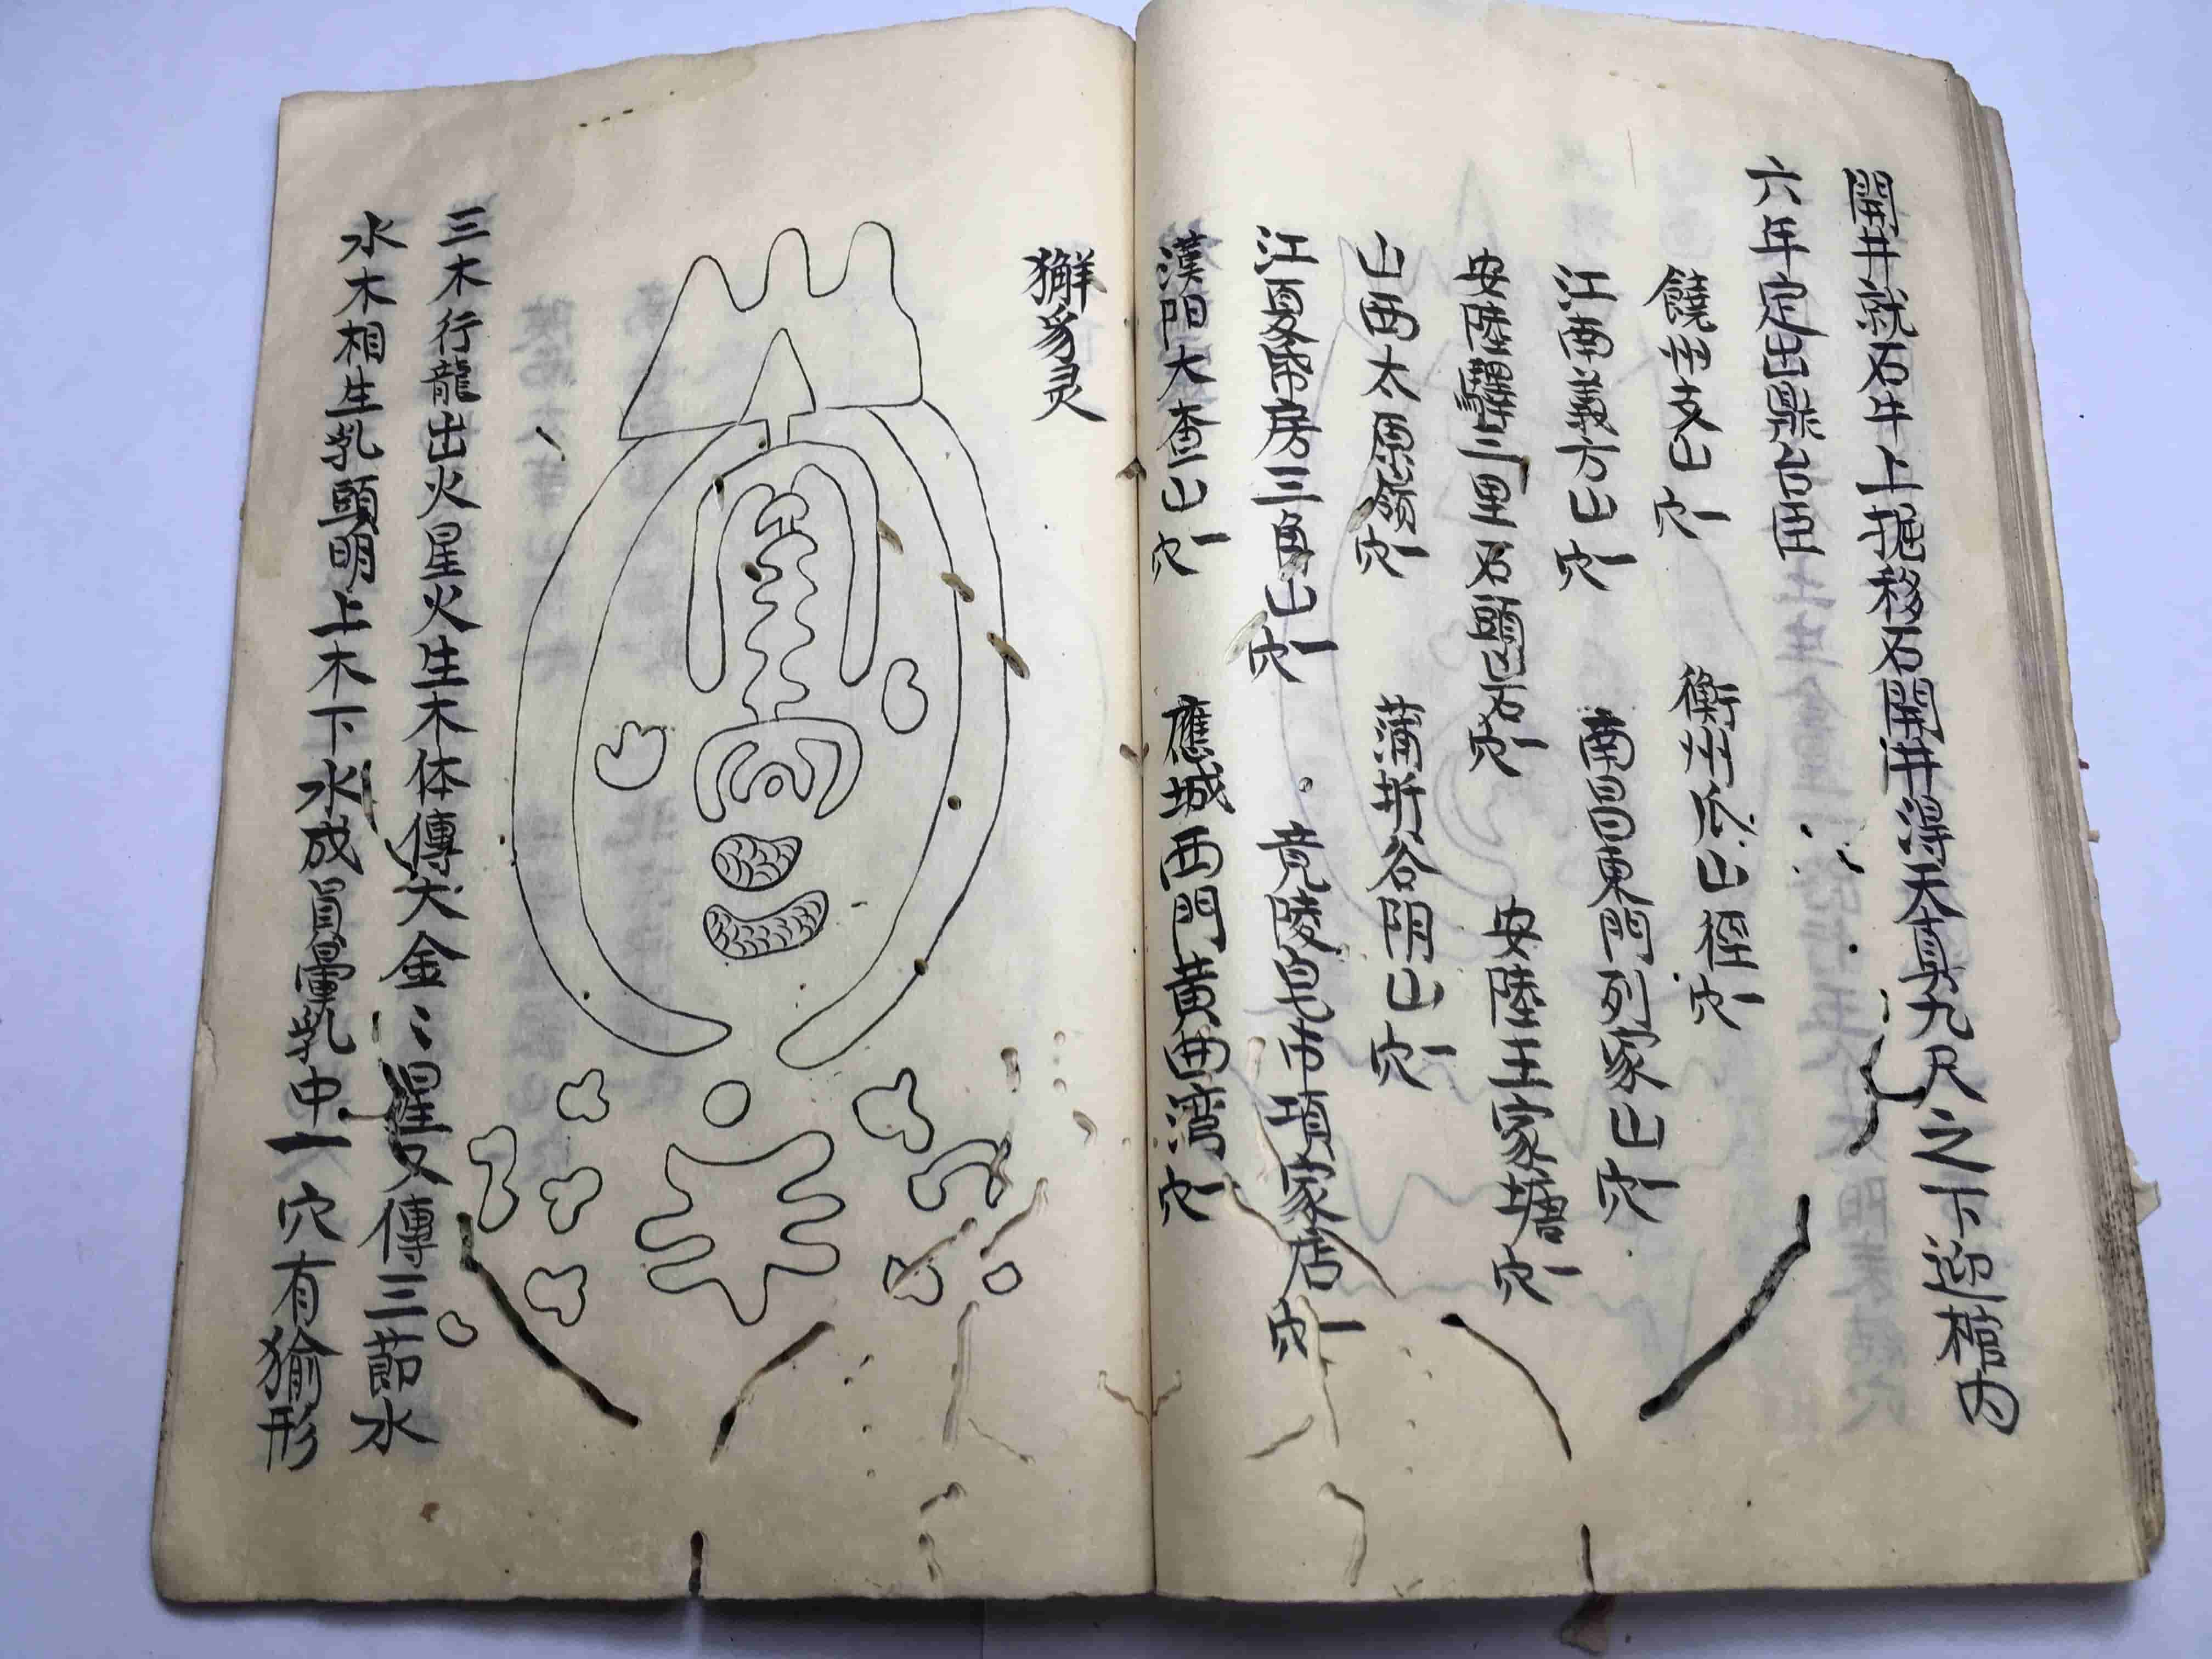 開井就石牛上掘移石開井得天真九尺之下迎棺内
六年定出梟台臣
饒州支山穴一
衡州瓜山徑穴一
江西義方山穴一
南昌東門列家山穴一
安陸驛三里石鵑山石穴一
安陸王家塘穴一
山西太原嶺穴一
蒲圻谷阴山穴一
江夏降房三角山穴一
竟陵皂市項家店穴一
漢阳大查山穴一
應城西門黃西湾穴一
獬豸灵
三木行龍出火星火生木体傳大金〻星又傳三節水
水木相生乳頭明上木下水成員暈乳中一穴有獝形